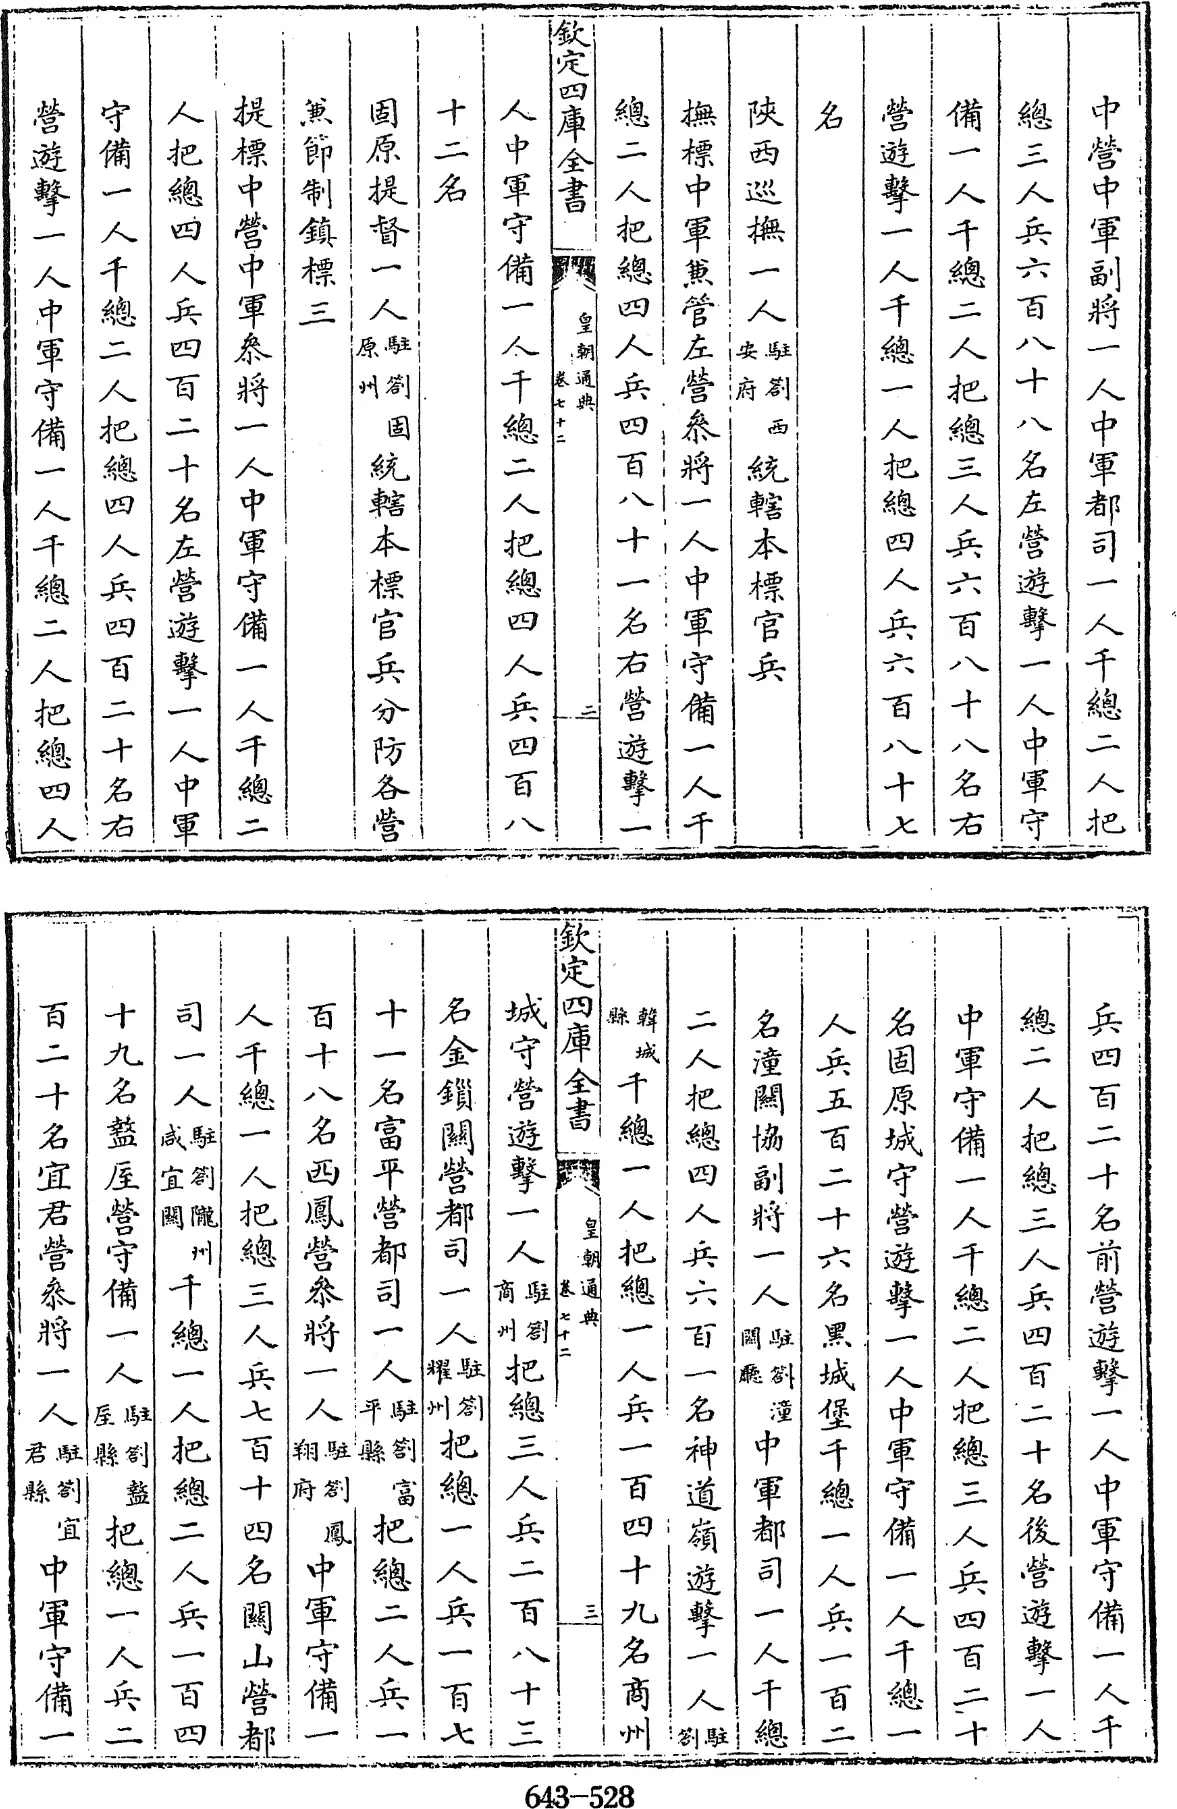 中營中軍副將一人中軍都司一人千總二人把
總三人兵六百八十八名左營遊擊一人中軍守
備一人千總二人把總三人兵六百八十八名右
營遊擊一人千總一人把總四人兵六百八十七
名
陝西巡撫一人駐劄西安府統轄本標官兵
撫標中軍兼管左營叅將一人中軍守備一人千
總二人把總四人兵四百八十一名右營遊擊一
欽定四庫全書
皇朝通典
卷七十二
二
人中軍守備一人千總二人把總四人兵四百八
十二名
固原提督一人駐劄固原州統轄本標官兵分防各營
兼節制鎮標三
提標中營中軍叅將一人中軍守備一人千總二
人把總四人兵四百二十名左營遊擊一人中軍
守備一人千總二人把總四人兵四百二十名右
營遊擊一人中軍守備一人千總二人把總四人
兵四百二十名前營遊擊一人中軍守備一人千
總二人把總三人兵四百二十名後營遊擊一人
中軍守備一人千總二人把總三人兵四百二十
名固原城守營遊擊一人中軍守備一人千總一
人兵五百二十六名黑城堡千總一人兵一百二
名潼關協副將一人駐劄潼關廳中軍都司一人千總
二人把總四人兵六百一名神道嶺遊擊一人駐劄
韓城縣千總一人把總一人兵一百四十九名商州
欽定四庫全書
皇朝通典
卷七十二
三
城守營遊擊一人駐劄商州把總三人兵二百八十三
名金鎖關營都司一人駐劄耀州把總一人兵一百七
十一名富平營都司一人駐劄富平縣把總二人兵一
百十八名西鳳營叅將一人駐劄鳳翔府中軍守備一
人千總一人把總三人兵七百十四名關山營都
司一人駐劄隴州咸宜關千總一人把總二人兵一百四
十九名盩厔營守備一人駐劄盩厔縣把總一人兵二
百二十名宜君營叅將一人駐劄宜君縣中軍守備一
643-528